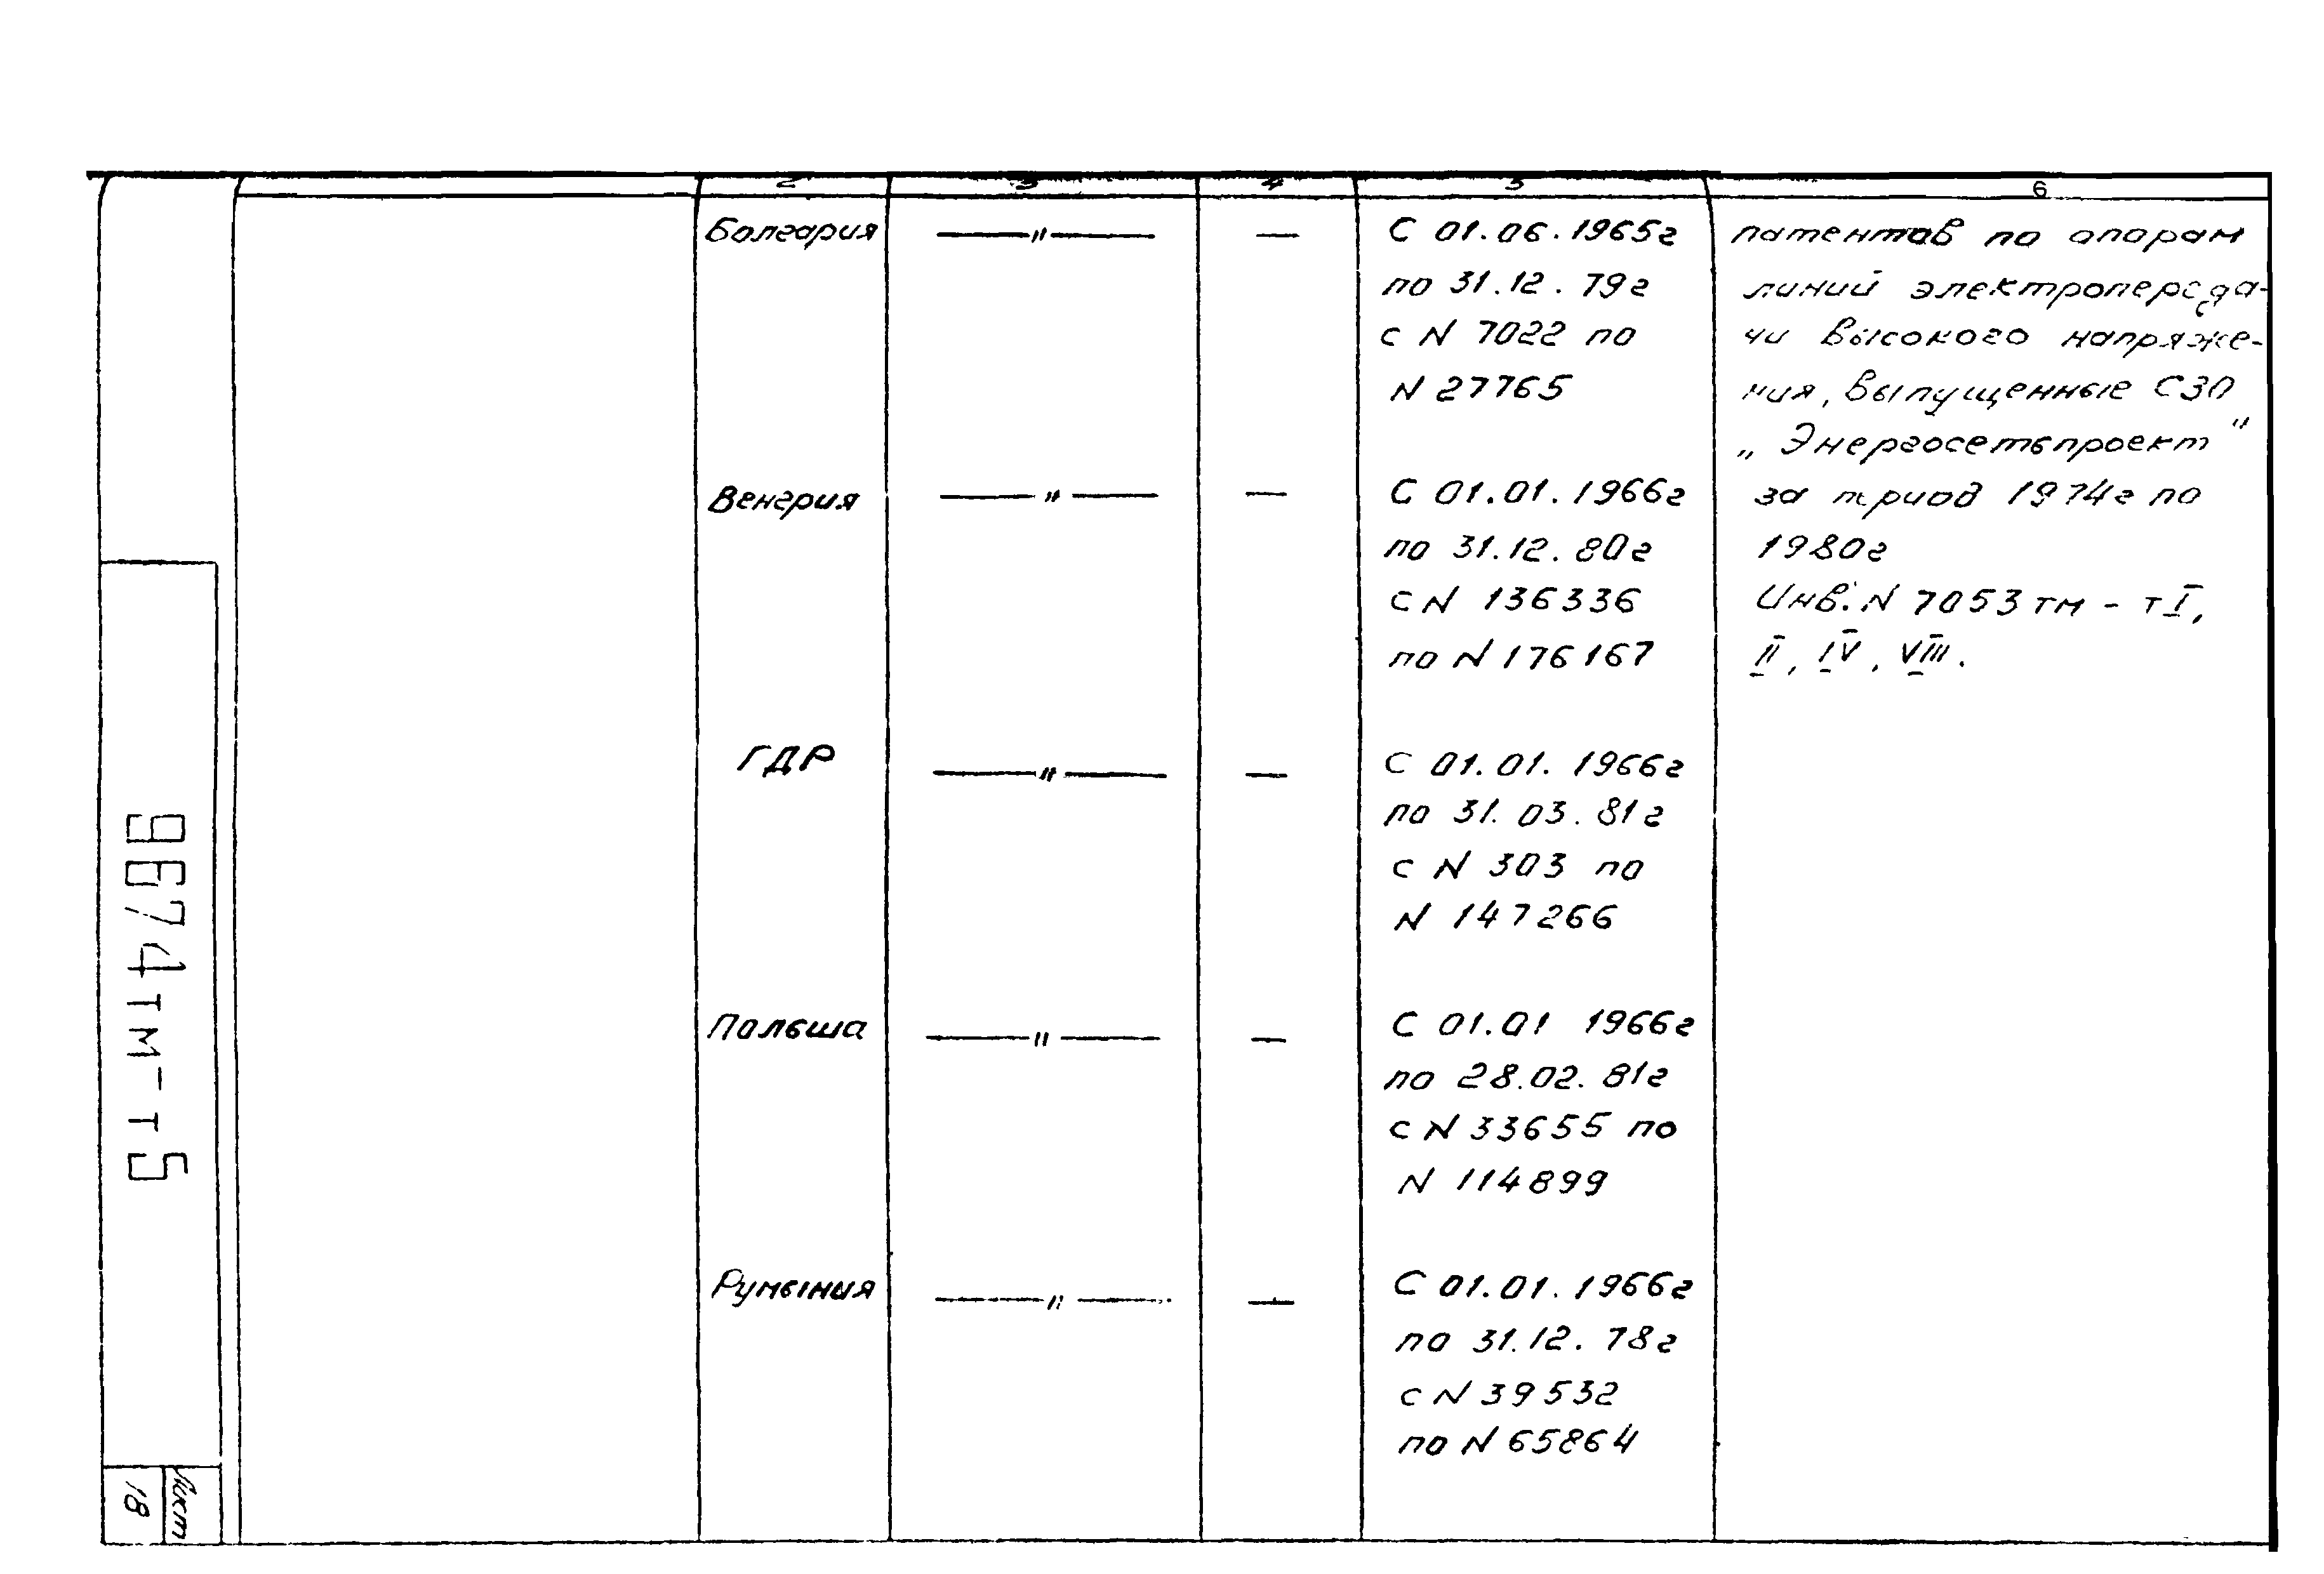 2 3 4 5 6
Болгария —"— — С 01.06.1965г патентов по опорам
по 31.12.79г линий электропереда-
с N 7022 по чи высокого напряже-
N 27765 ния, выпущенные СЗО
„Энергосетьпроект"
Венгрия —"— — С 01.01.1966г за период 1974г по
по 31.12.80г 1980г
с N 136336 Инв. N 7053тм - т I,
по N 176167 II, IV, VIII.
ГДР —"— — С 01.01.1966г
по 31.03.81г
с N 303 по
N 147266
Польша —"— — С 01.01 1966г
по 28.02.81г
с N 33655 по
N 114899
Румыния —"— — С 01.01.1966г
по 31.12.78г
с N 39532
по N 65864
9674тм-т5
Лист
18